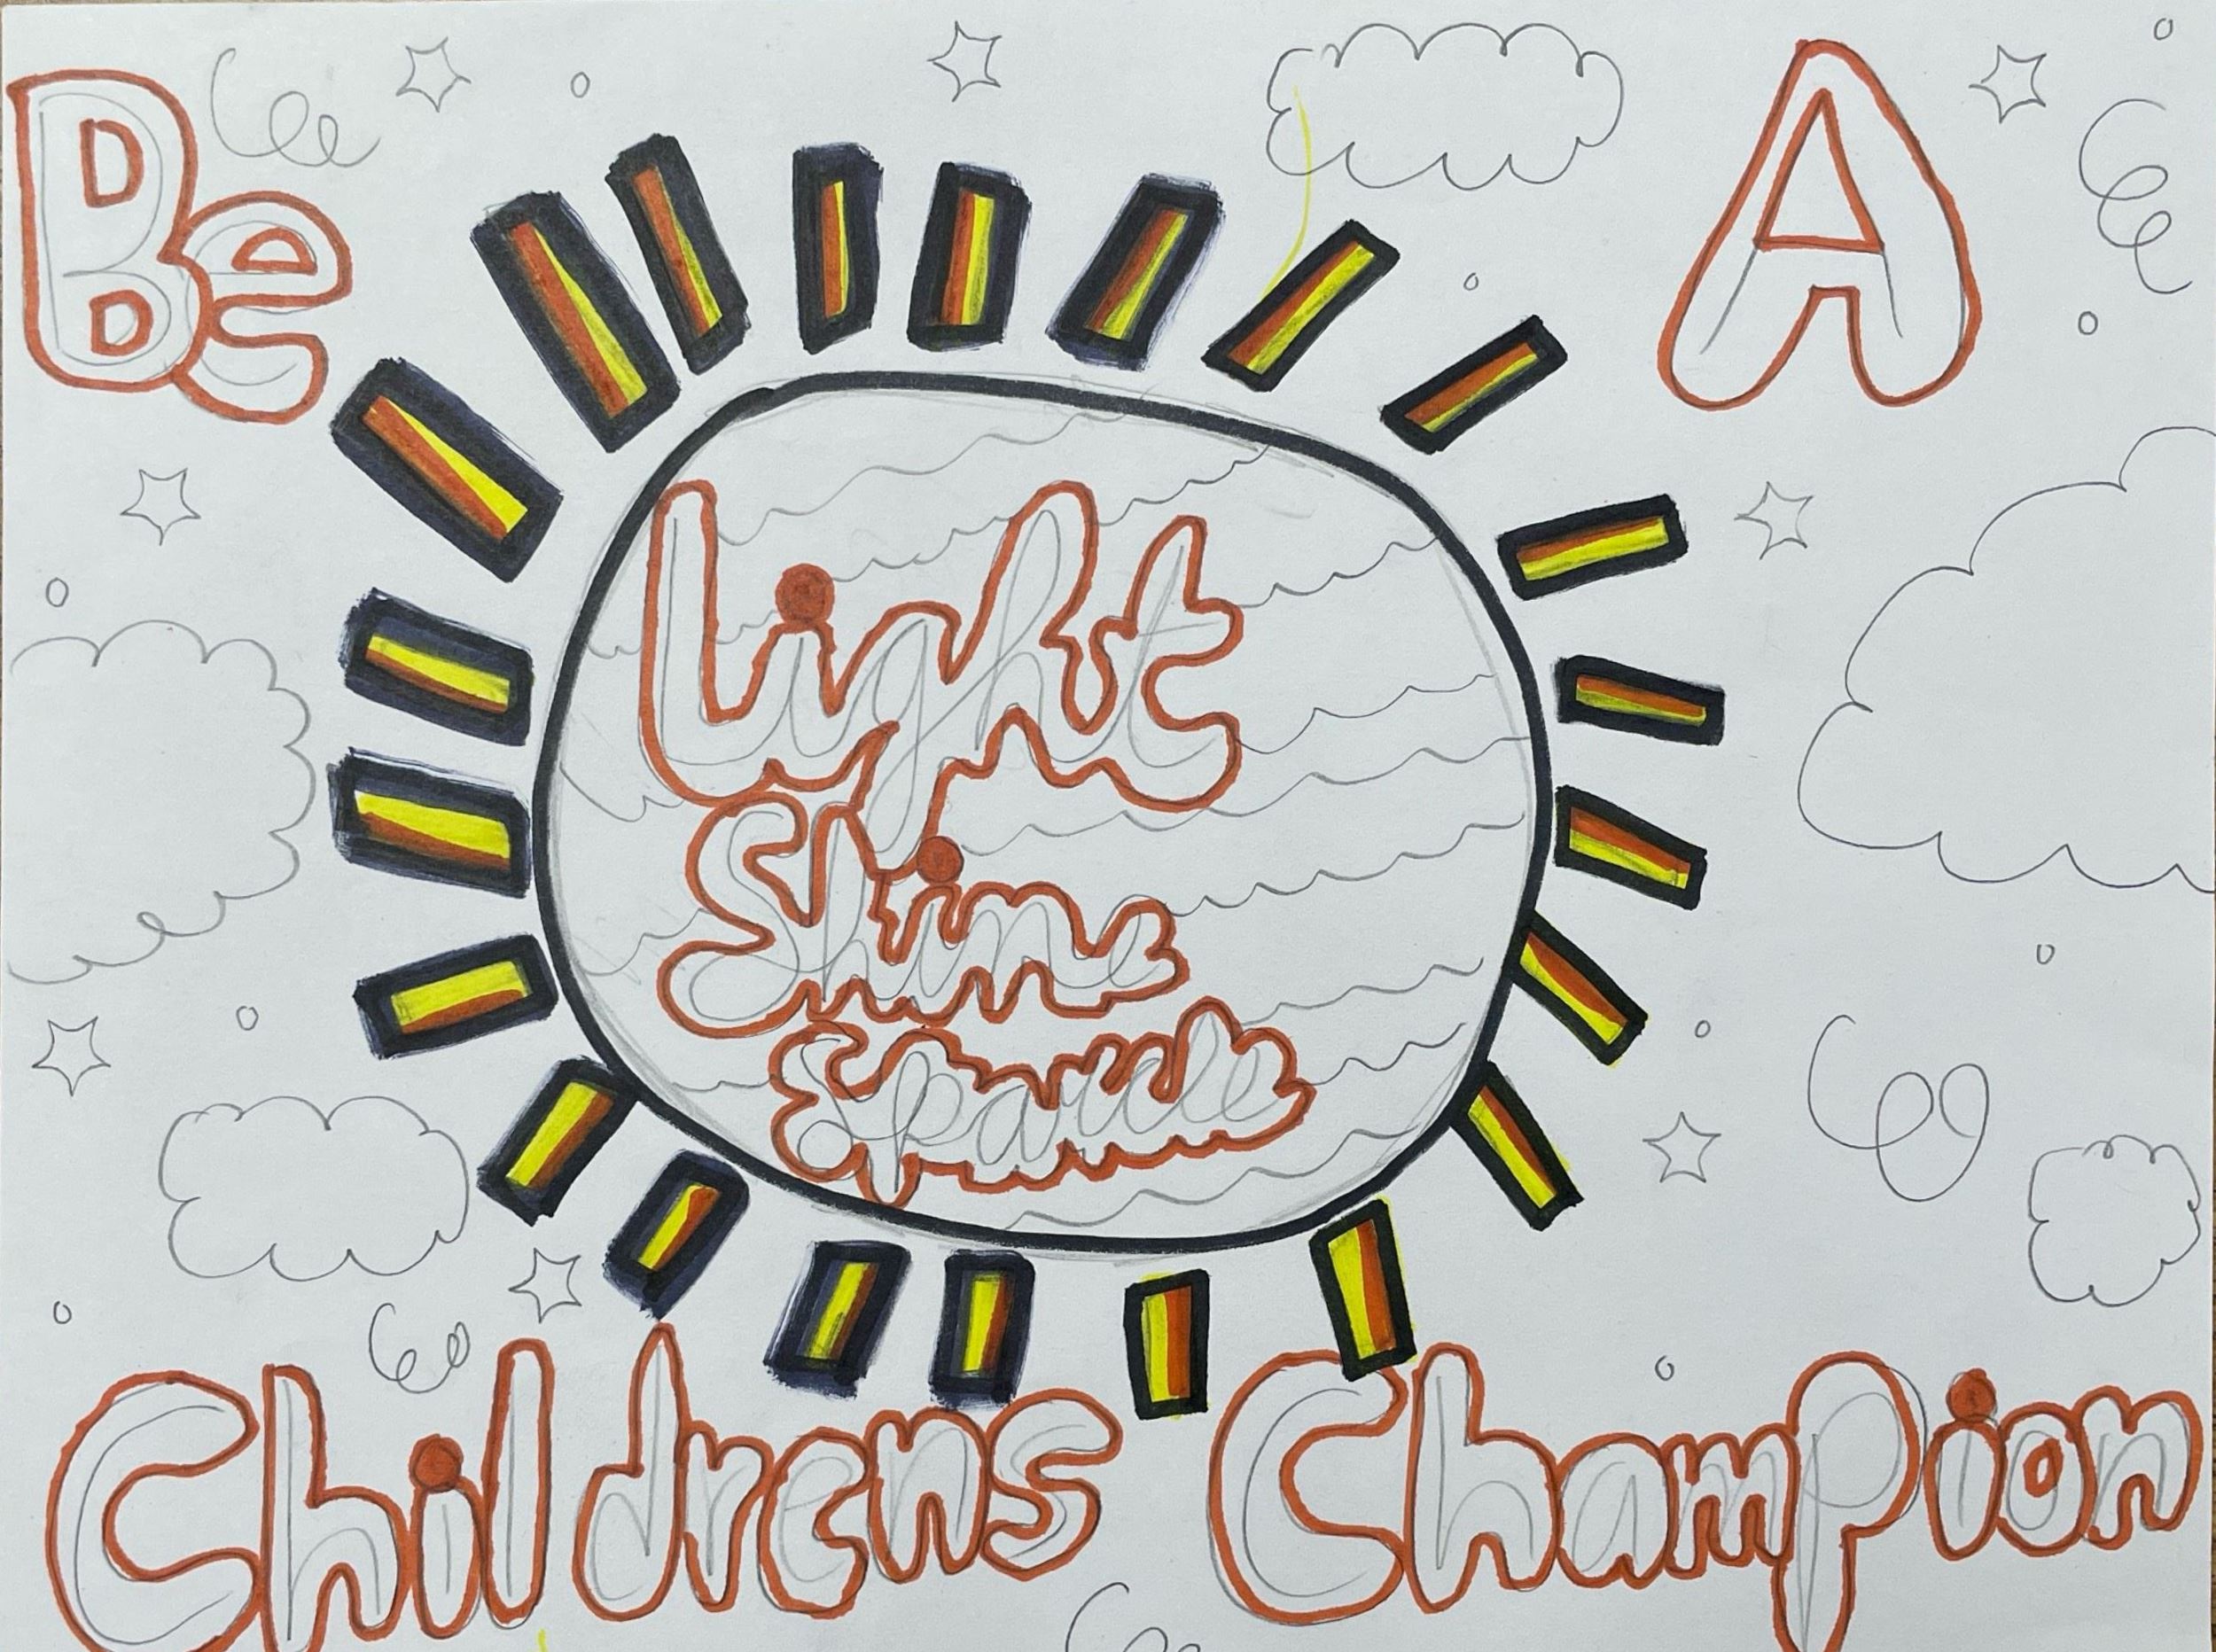 Be A
Light
Shine
Sparcle
Childrens Champion